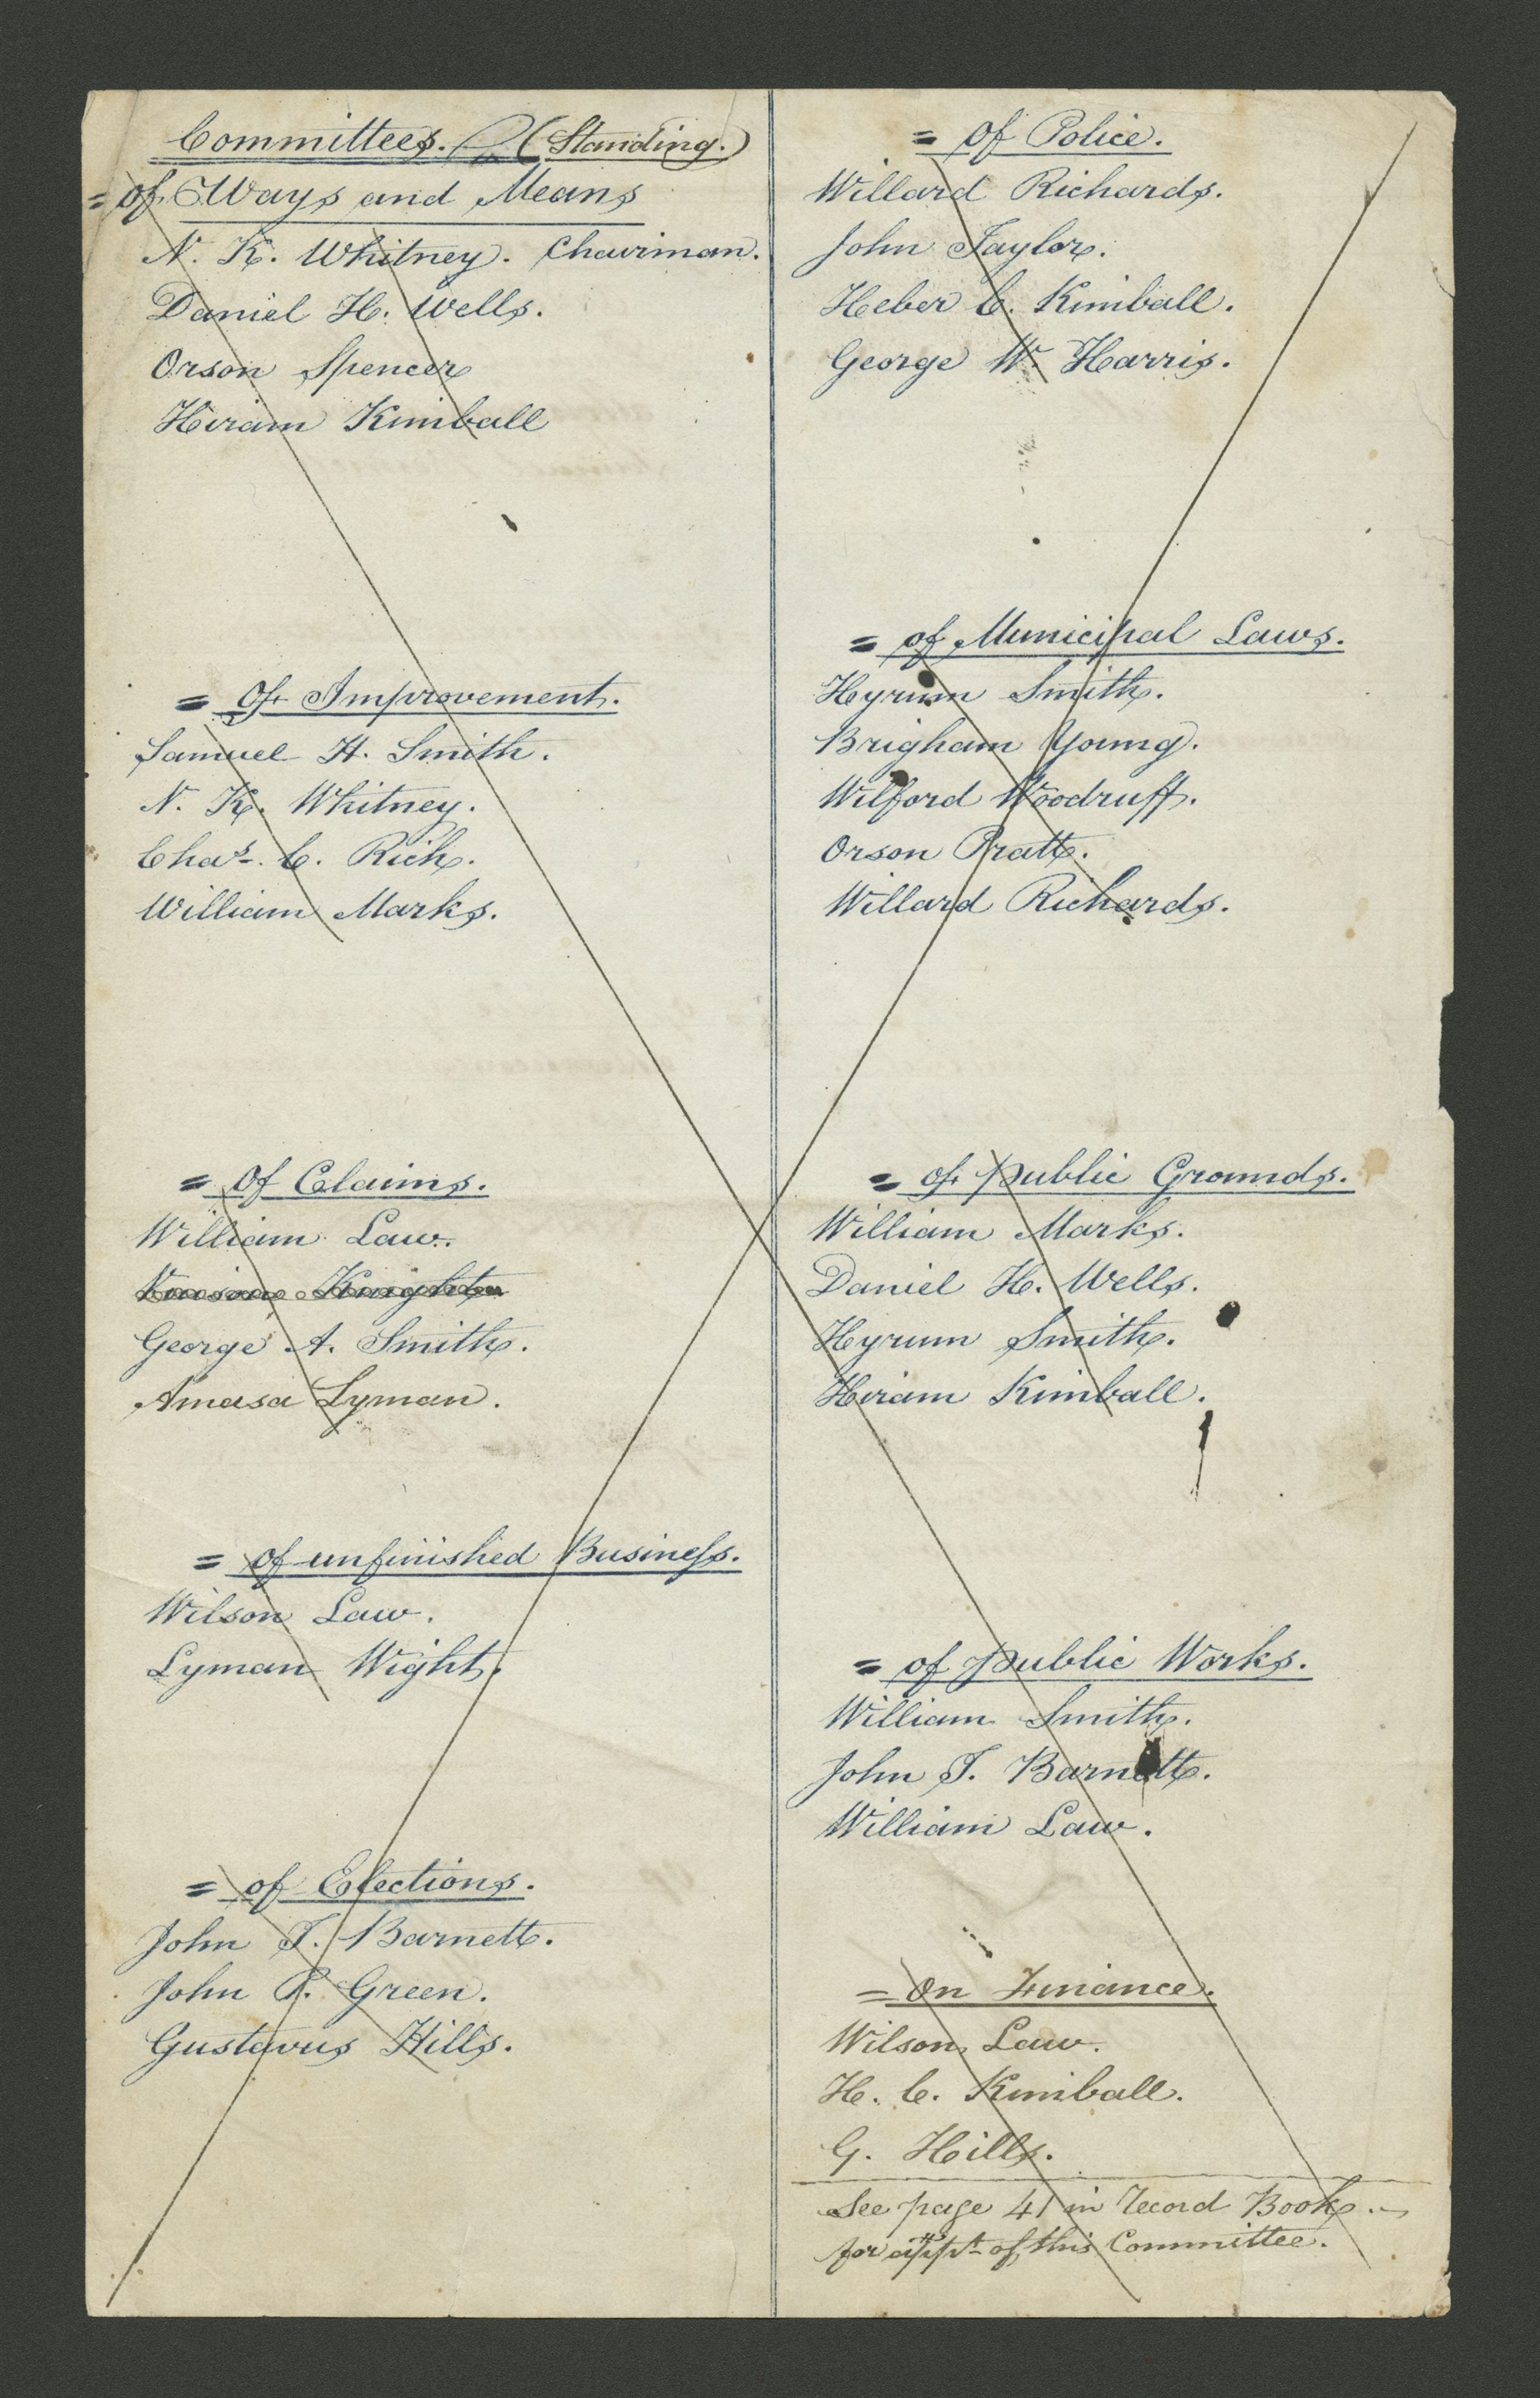 Committees. (Standing.)
= of Ways and Means
N. K. Whitney. Chairman.
Daniel H. Wells.
Orson Spencer
Hiram Kimball
= Of Improvement.
Samuel H. Smith.
N. K. Whitney.
Chas. C. Rich.
William Marks.
= Of Claims.
William Law.
Vinson Knight
George A. Smith.
Amasa Lyman.
= of unfinished Business.
Wilson Law.
Lyman Wight.
= of Elections.
John T. Barnett.
John P. Green.
Gustavus Hills.
= Of Police.
Willard Richards.
John Taylor.
Heber C. Kimball.
George W. Harris.
= of Municipal Laws.
Hyrum Smith.
Brigham Young.
Wilford Woodruff.
Orson Pratt.
Willard Richards.
= of Public Grounds.
William Marks.
Daniel H. Wells.
Hyrum Smith.
Hiram Kimball.
= of Public Works.
William Smith.
John T. Barnett.
William Law.
= On Finance.
Wilson Law.
H. C. Kimball.
G. Hills.
See page 41 in Record Book.
for appt. of this Committee.